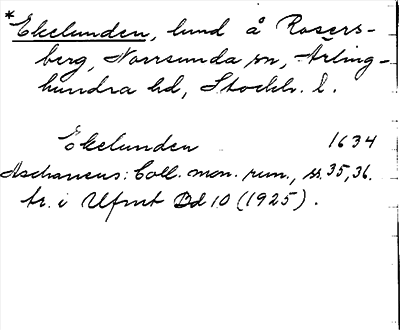 *Ekelunden, lund å Rosers-
berg, Norrsunda sn, Ärling-
hundra hd, Stockh. l.
Ekelunden 1634
Aschaneus: Coll. mon. run., ss. 35, 36.
tr. i Ufmt Bd 10 (1925).